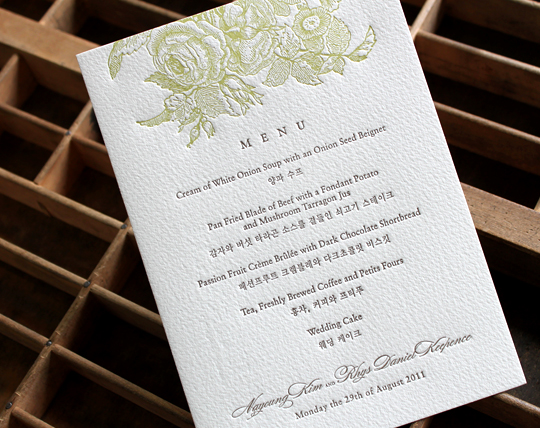 MENU
Cream of White Onion Soup with an Onion Seed Beignet
양파 수프
Pan Fried Blade of Beef with a Fondant Potato
and Mushroom Tarragon Jus
감자와 버섯 타라곤 소스를 곁들인 쇠고기 스테이크
Passion Fruit Crème Brûlée with Dark Chocolate Shortbread
패션프루트 크렘블레와 다크초콜릿 비스킷
Tea, Freshly Brewed Coffee and Petits Fours
홍차, 커피와 프티푸
Wedding Cake
웨딩 케이크
Nayoung Kim AND Rhys Daniel Keepence
Monday the 29th of August 2011